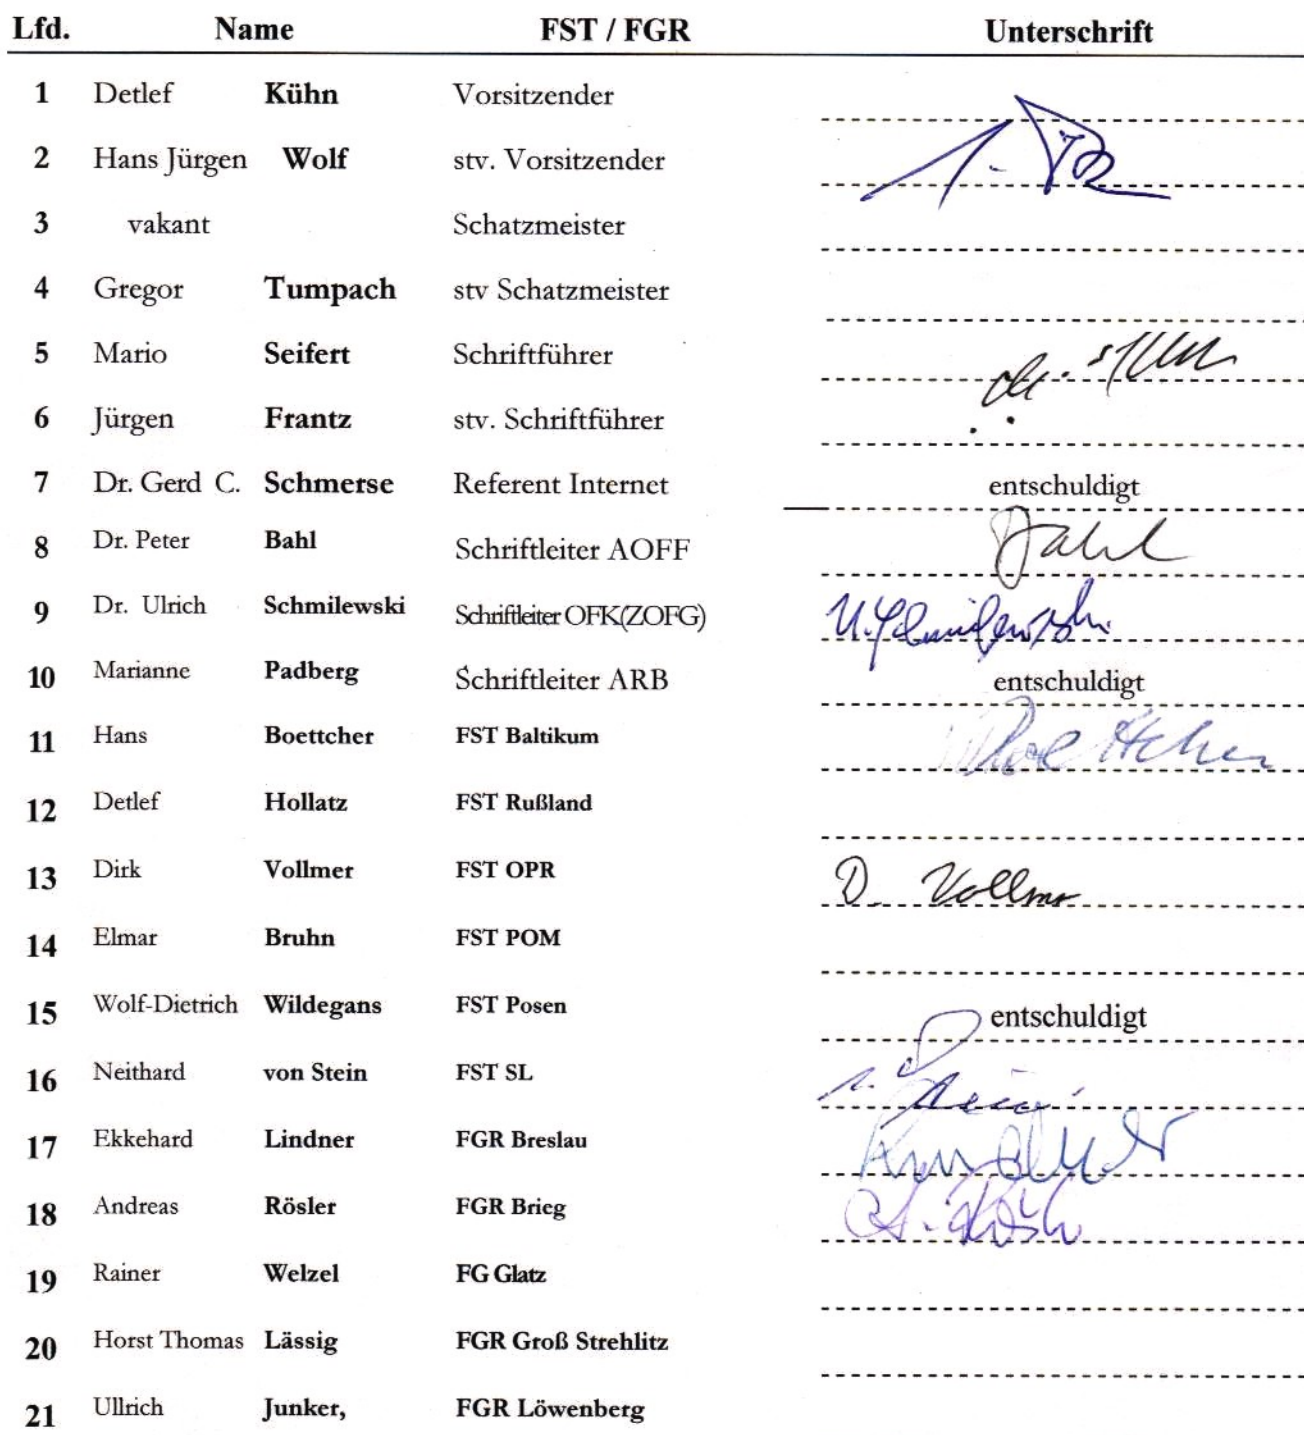 Lfd. Name FST / FGR Unterschrift
1 Detlef Kühn Vorsitzender
2 Hans Jürgen Wolf stv. Vorsitzender
3 vakant Schatzmeister
4 Gregor Tumpach stv Schatzmeister
5 Mario Seifert Schriftführer
6 Jürgen Frantz stv. Schriftführer
7 Dr. Gerd C. Schmerse Referent Internet entschuldigt
8 Dr. Peter Bahl Schriftleiter AOFF Bahl
9 Dr. Ulrich Schmilewski Schriftleiter OFK(ZOFG) U. Schmilewski
10 Marianne Padberg Schriftleiter ARB entschuldigt
11 Hans Boettcher FST Baltikum Boettcher
12 Detlef Hollatz FST Rußland
13 Dirk Vollmer FST OPR D. Vollmer
14 Elmar Bruhn FST POM
15 Wolf-Dietrich Wildegans FST Posen entschuldigt
16 Neithard von Stein FST SL v. Stein
17 Ekkehard Lindner FGR Breslau
18 Andreas Rösler FGR Brieg
19 Rainer Welzel FG Glatz
20 Horst Thomas Lässig FGR Groß Strehlitz
21 Ullrich Junker, FGR Löwenberg